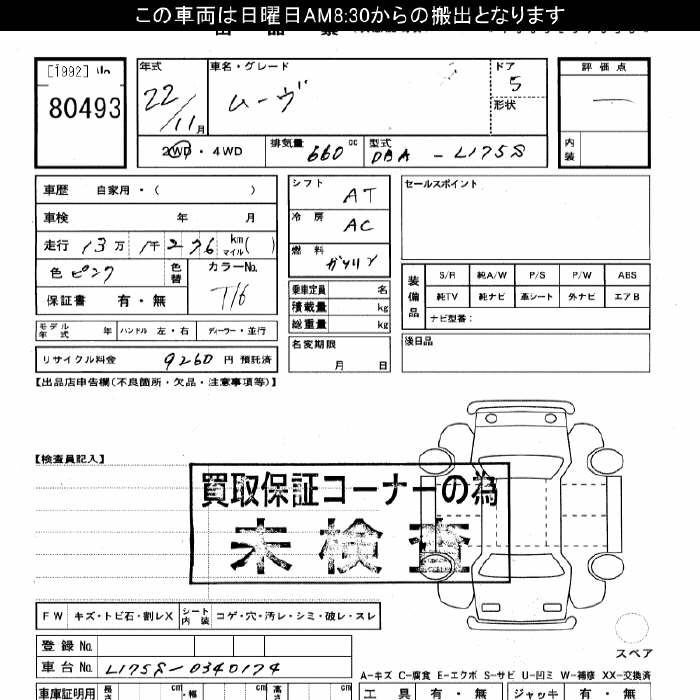 この車両は日曜日AM8:30からの搬出となります
[1992]
80493
年式
22/11月
車名・グレード
ムーヴ
ドア
5
形状
評価点
内装
2WD・4WD
排気量
660cc
型式
DBA-L175S
車歴 自家用・( )
車検 年 月
走行 13万1千276 km マイル( )
色 ピンク
色替
カラーNo.
T16
保証書 有・無
モデル年式 年 ハンドル 左・右 ディーラー・並行
リサイクル料金 9260円 預託済
シフト AT
冷房 AC
燃料 ガソリン
乗車定員 名
積載量 kg
総重量 kg
名変期限
月 日
セールスポイント
装備品
S/R 純A/W P/S P/W ABS
純TV 純ナビ 革シート 外ナビ エアB
ナビ型番:
後日品
【出品店申告欄(不良箇所・欠品・注意事項等)】
【検査員記入】
買取保証コーナーの為
未検査
FW キズ・トビ石・割レX シート内装 コゲ・穴・汚レ・シミ・破レ・スレ
登録No.
車台No. L175S-0340174
スペア
A-キズ C-腐食 E-エクボ S-サビ U-凹ミ W-補修 XX-交換済
車庫証明用 長さ cm ・幅 cm 高さ cm
工具 有・無 ジャッキ 有・無